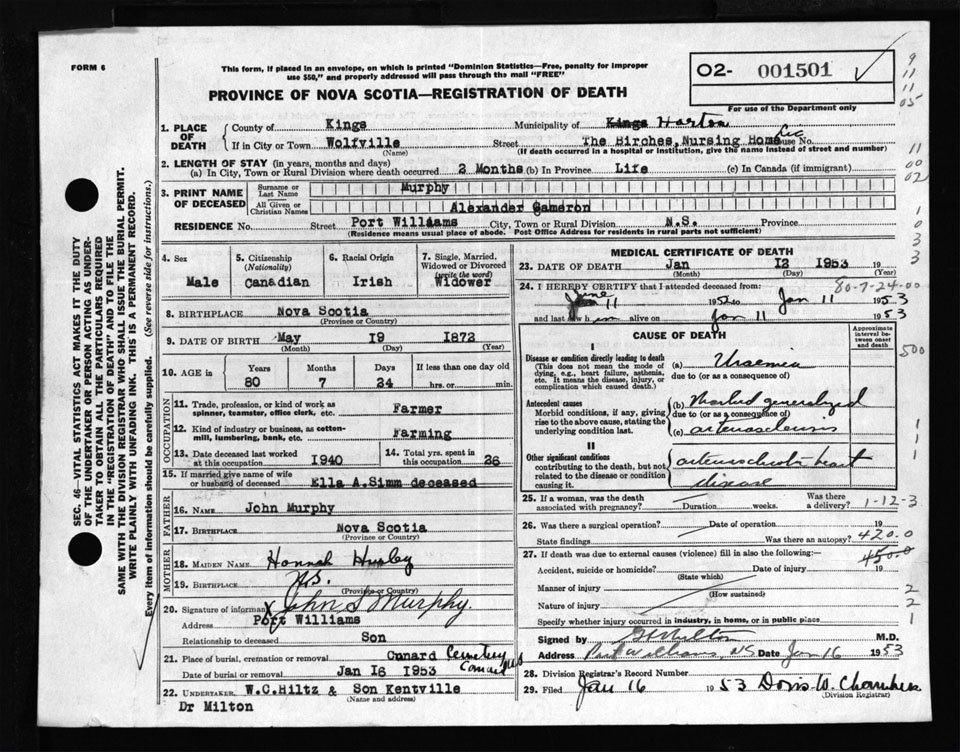 FORM 6
This form, if placed in an envelope, on which is printed "Dominion Statistics—Free, penalty for improper
use $50," and properly addressed will pass through the mail "FREE"
PROVINCE OF NOVA SCOTIA—REGISTRATION OF DEATH
O2- 001501
For use of the Department only
9
11
11
05
11
00
02
1
0
3
3
SEC. 46—VITAL STATISTICS ACT MAKES IT THE DUTY
OF THE UNDERTAKER OR PERSON ACTING AS UNDER-
TAKER TO OBTAIN ALL THE PARTICULARS REQUIRED
IN THE "REGISTRATION OF DEATH" AND TO FILE THE
SAME WITH THE DIVISION REGISTRAR WHO SHALL ISSUE THE BURIAL PERMIT.
WRITE PLAINLY WITH UNFADING INK. THIS IS A PERMANENT RECORD.
Every item of information should be carefully supplied. (See reverse side for instructions.)
1. PLACE OF DEATH County of Kings Municipality of Kings Horton
If in City or Town Wolfville Street The Birches, Nursing Home House No.
(Name) (If death occurred in a hospital or institution, give the name instead of street and number)
2. LENGTH OF STAY (in years, months and days)
(a) In City, Town or Rural Division where death occurred 2 Months (b) In Province Life (c) In Canada (if immigrant)
3. PRINT NAME OF DECEASED Surname or Last Name Murphy
All Given or Christian Names Alexander Cameron
RESIDENCE No. Street Port Williams City, Town or Rural Division N.S. Province
(Residence means usual place of abode. Post Office Address for residents in rural parts not sufficient)
4. Sex Male
5. Citizenship (Nationality) Canadian
6. Racial Origin Irish
7. Single, Married, Widowed or Divorced (write the word) Widower
8. BIRTHPLACE Nova Scotia
(Province or Country)
9. DATE OF BIRTH May 19 1872
(Month) (Day) (Year)
10. AGE Years Months Days If less than one day old
80 7 24 hrs. or min.
OCCUPATION
11. Trade, profession, or kind of work as spinner, teamster, office clerk, etc. Farmer
12. Kind of industry or business, as cotton-mill, lumbering, bank, etc. Farming
13. Date deceased last worked at this occupation 1940
14. Total yrs. spent in this occupation 26
15. If married give name of wife or husband of deceased Ella A. Simm deceased
FATHER
16. Name John Murphy
17. Birthplace Nova Scotia
(Province or Country)
MOTHER
18. MAIDEN NAME Hannah
19. BIRTHPLACE
(Province or Country)
20. Signature of informant X John S Murphy.
Address Port Williams
Relationship to deceased Son
21. Place of burial, cremation or removal Cunard Cemetery
Date of burial or removal Jan 16 1953
22. UNDERTAKER W.C.Hiltz & Son Kentville
(Name and address)
Dr Milton
MEDICAL CERTIFICATE OF DEATH
23. DATE OF DEATH Jan 12 1953 19
(Month) (Day) (Year)
80-7-24-00
24. I HEREBY CERTIFY that I attended deceased from:
June 11 1952 to Jan 11 1953
and last saw him alive on Jan 11 1953
CAUSE OF DEATH
Approximate interval between onset and death
500
I
Disease or condition directly leading to death
(This does not mean the mode of dying, e.g., heart failure, asthenia, etc. It means the disease, injury, or complication which caused death.)
(a) Uraemia
due to (or as a consequence of)
Antecedent causes
Morbid conditions, if any, giving rise to the above cause, stating the underlying condition last.
(b) Marked generalized
due to (or as a consequence of)
(c) arteriosclerosis
1
1
1
II
Other significant conditions
contributing to the death, but not related to the disease or condition causing it.
arteriosclerotic heart
disease
25. If a woman, was the death associated with pregnancy? Duration weeks. Was there a delivery?
1-12-3
26. Was there a surgical operation? Date of operation 19
State findings Was there an autopsy?
420.0
450.0
27. If death was due to external causes (violence) fill in also the following:—
Accident, suicide or homicide? Date of injury 19
(State which)
Manner of injury
(How sustained)
Nature of injury
Specify whether injury occurred in industry, in home, or in public place
2
2
1
Signed by M.D.
Address Port Williams, NS Date Jan 16 1953
28. Division Registrar's Record Number
29. Filed Jan 16 1953 Doris W. Chambers
(Division Registrar)